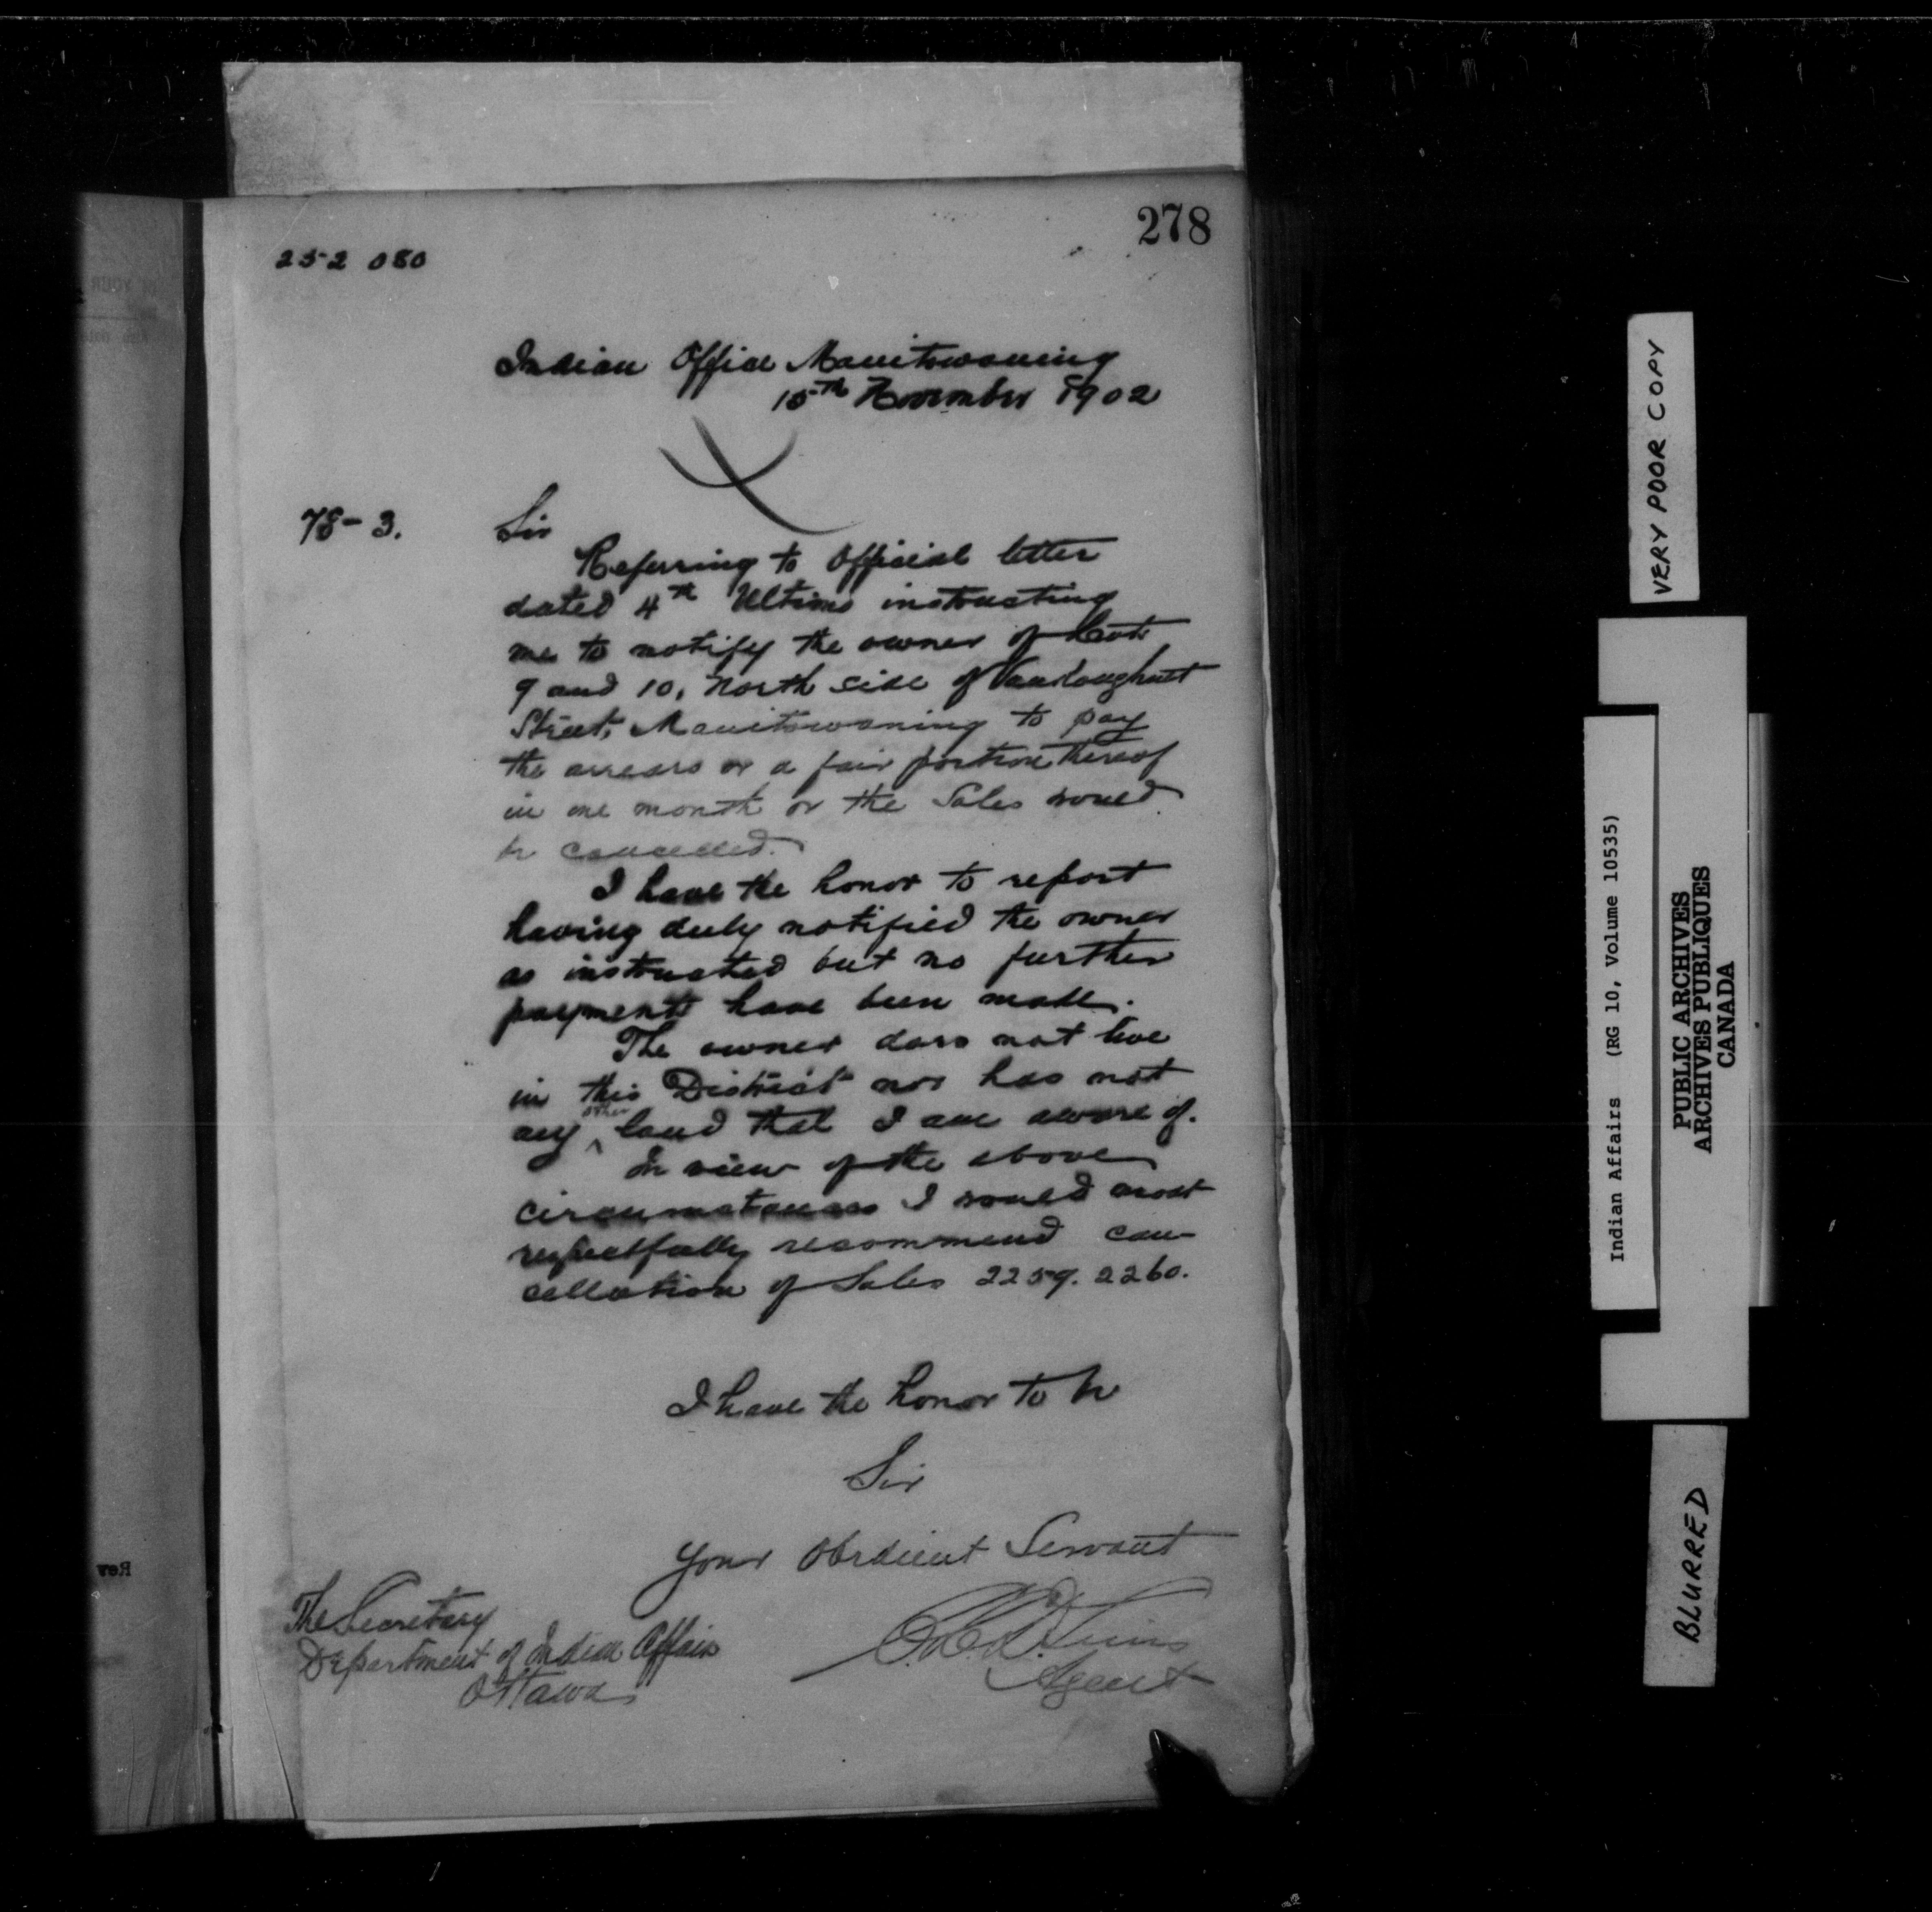 278
252 080
Indian Office Manitowaning
15th November 1902
78-3.
Sir
Referring to Official letter
dated 4th Ultimo instructing
me to notify the owner of Lots
9 and 10, North side of Vankoughnet
Street, Manitowaning to pay
the arrears or a fair portion thereof
in one month or the Sales would
be cancelled.
I have the honor to report
having duly notified the owner
as instructed but no further
payments have been made.
The owner does not live
in this District nor has not
any other land that I am aware of.
In view of the above
circumstances I would most
respectfully recommend can-
cellation of Sales 2259. 2260.
I have the honor to be
Sir
Your Obedient Servant
The Secretary
Department of Indian Affairs
Ottawa
Agent
VERY POOR COPY
Indian Affairs (RG 10, Volume 10535)
PUBLIC ARCHIVES
ARCHIVES PUBLIQUES
CANADA
BLURRED